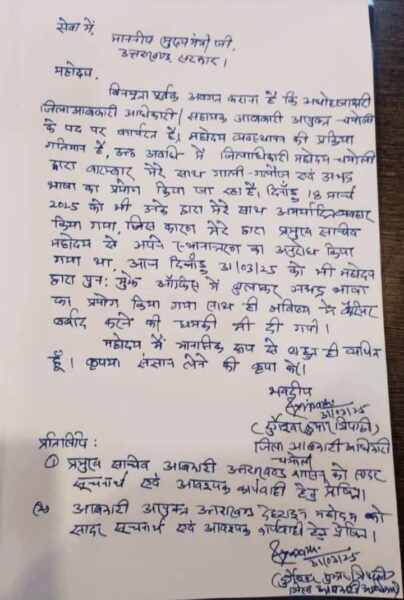 सेवा में,
माननीय मुख्यमंत्री जी,
उत्तराखण्ड सरकार।
महोदय,
विनम्रता पूर्वक अवगत कराना है कि अधोहस्ताक्षरी
जिला आबकारी अधिकारी/सहायक आबकारी आयुक्त-चमोली
के पद पर कार्यरत है। महोदय व्यवस्थापन की प्रक्रिया
गतिमान है, उक्त अवधि में जिलाधिकारी महोदय-चमोली
द्वारा बारम्बार मेरे साथ गाली-गलौज एवं अभद्र
भाषा का प्रयोग किया जा रहा है। दिनाँक 18 मार्च
2025 को भी उनके द्वारा मेरे साथ अमर्यादित व्यवहार
किया गया, जिस कारण मेरे द्वारा प्रमुख सचिव
महोदय से अपने स्थानान्तरण का अनुरोध किया
गया था, आज दिनाँक 31/03/25 को भी महोदय
द्वारा पुनः मुझे ऑफिस में बुलाकर अभद्र भाषा
का प्रयोग किया गया साथ ही भविष्य में कैरियर
बर्बाद करने की धमकी भी दी गयी।
महोदय में मानसिक रूप से बहुत ही व्यथित
हूँ। कृपया संज्ञान लेने की कृपा करें।
भवदीय
31/03/25
(दुर्गेश्वर कुमार त्रिपाठी)
जिला आबकारी अधिकारी
चमोली
प्रतिलिपि:
① प्रमुख सचिव आबकारी उत्तराखण्ड शासन को सादर
सूचनार्थ एवं आवश्यक कार्यवाही हेतु प्रेषित।
② आबकारी आयुक्त उत्तराखण्ड देहरादून महोदय को
सादर सूचनार्थ एवं आवश्यक कार्यवाही हेतु प्रेषित।
31/03/25
(दुर्गेश्वर कुमार त्रिपाठी)
जिला आबकारी अधिकारी